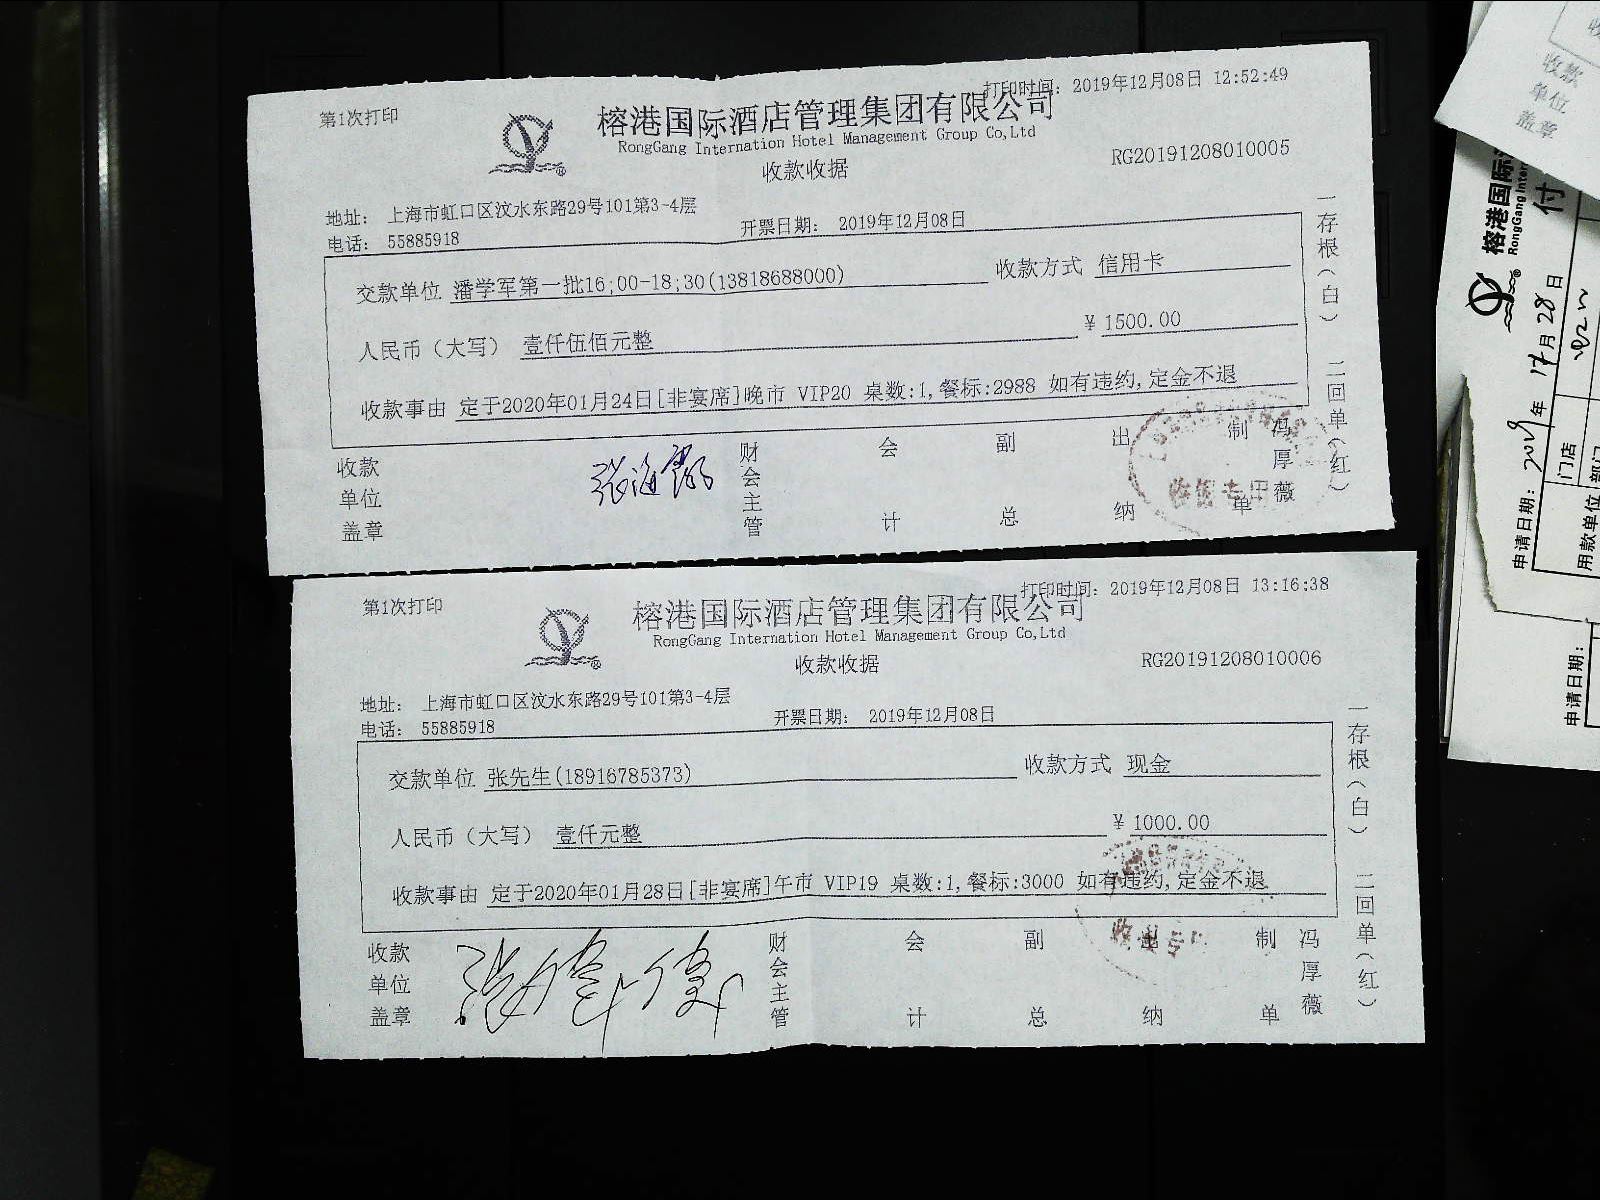 第1次打印
打印时间: 2019年12月08日 12:52:49
榕港国际酒店管理集团有限公司
RongGang Internation Hotel Management Group Co,Ltd
收款收据
RG20191208010005
地址: 上海市虹口区汶水东路29号101第3-4层
电话: 55885918
开票日期: 2019年12月08日
交款单位 潘学军第一批16;00-18;30(13818688000)
收款方式 信用卡
人民币（大写） 壹仟伍佰元整
¥ 1500.00
收款事由 定于2020年01月24日[非宴席]晚市 VIP20 桌数:1,餐标:2988 如有违约,定金不退
收款单位盖章
财会主管
会计
副总
出纳
制单
冯厚薇
一存根(白) 二回单(红)
第1次打印
打印时间: 2019年12月08日 13:16:38
榕港国际酒店管理集团有限公司
RongGang Internation Hotel Management Group Co,Ltd
收款收据
RG20191208010006
地址: 上海市虹口区汶水东路29号101第3-4层
电话: 55885918
开票日期: 2019年12月08日
交款单位 张先生(18916785373)
收款方式 现金
人民币（大写） 壹仟元整
¥ 1000.00
收款事由 定于2020年01月28日[非宴席]午市 VIP19 桌数:1,餐标:3000 如有违约,定金不退
收款单位盖章
财会主管
会计
副总
出纳
制单
冯厚薇
一存根(白) 二回单(红)
收款
单位
盖章
榕港国际
RongGang Inter
付
申请日期: 2019年
月28日
门店
用款单位
申请日期: